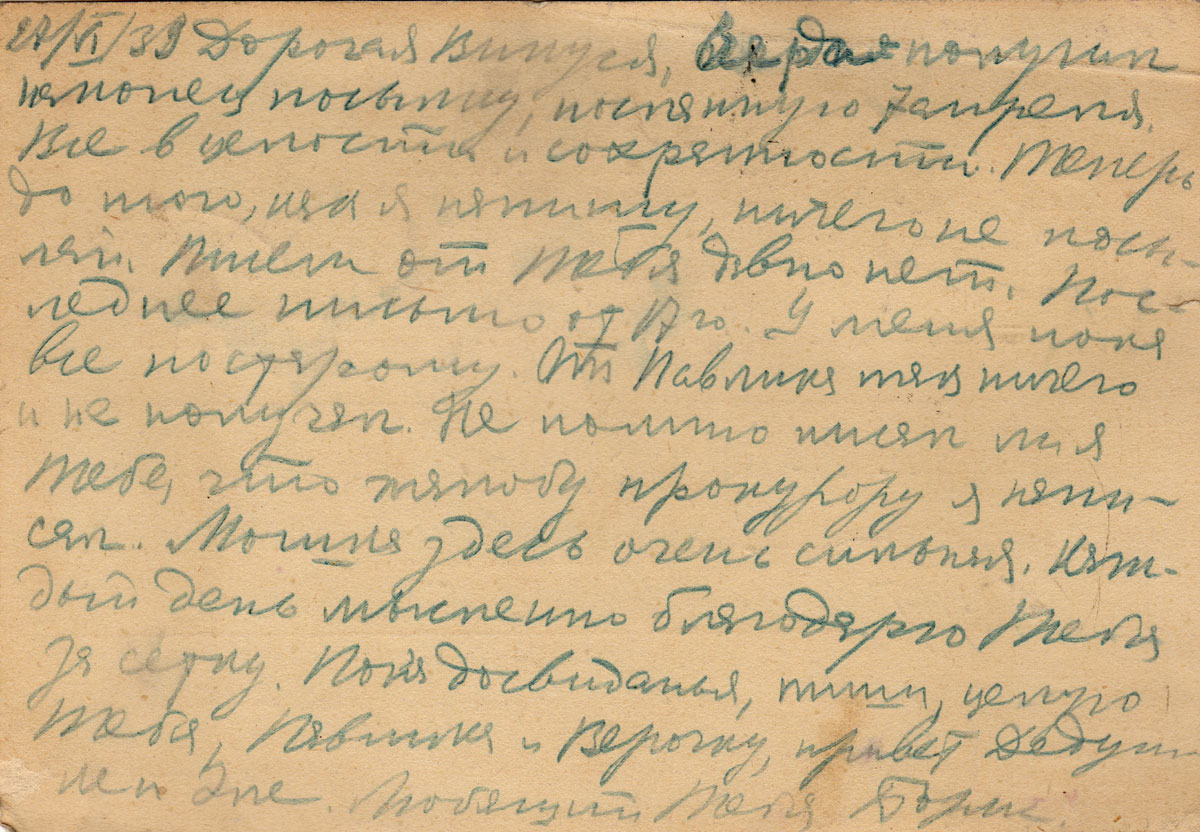 27/VI/39 Дорогая Винуся, вчера получил
наконец посылку, посланную 7 апреля.
Все в целости и сохранности. Теперь
до того, как я напишу, ничего не посы-
лай. Писем от Тебя давно нет. Пос-
леднее письмо от У меня пока
все постарому. От Павлика так ничего
и не получал. Не помню писал ли я
Тебе, что жалобу прокурору я напи-
сал. Мошка здесь очень сильная. Каж-
дый день мысленно благодарю Тебя
за сетку. Пока досвиданья, пиши, целую
Тебя, Павлика и Верочку, привет Дедуш-
ке и Эле. Любящий Тебя Борис.